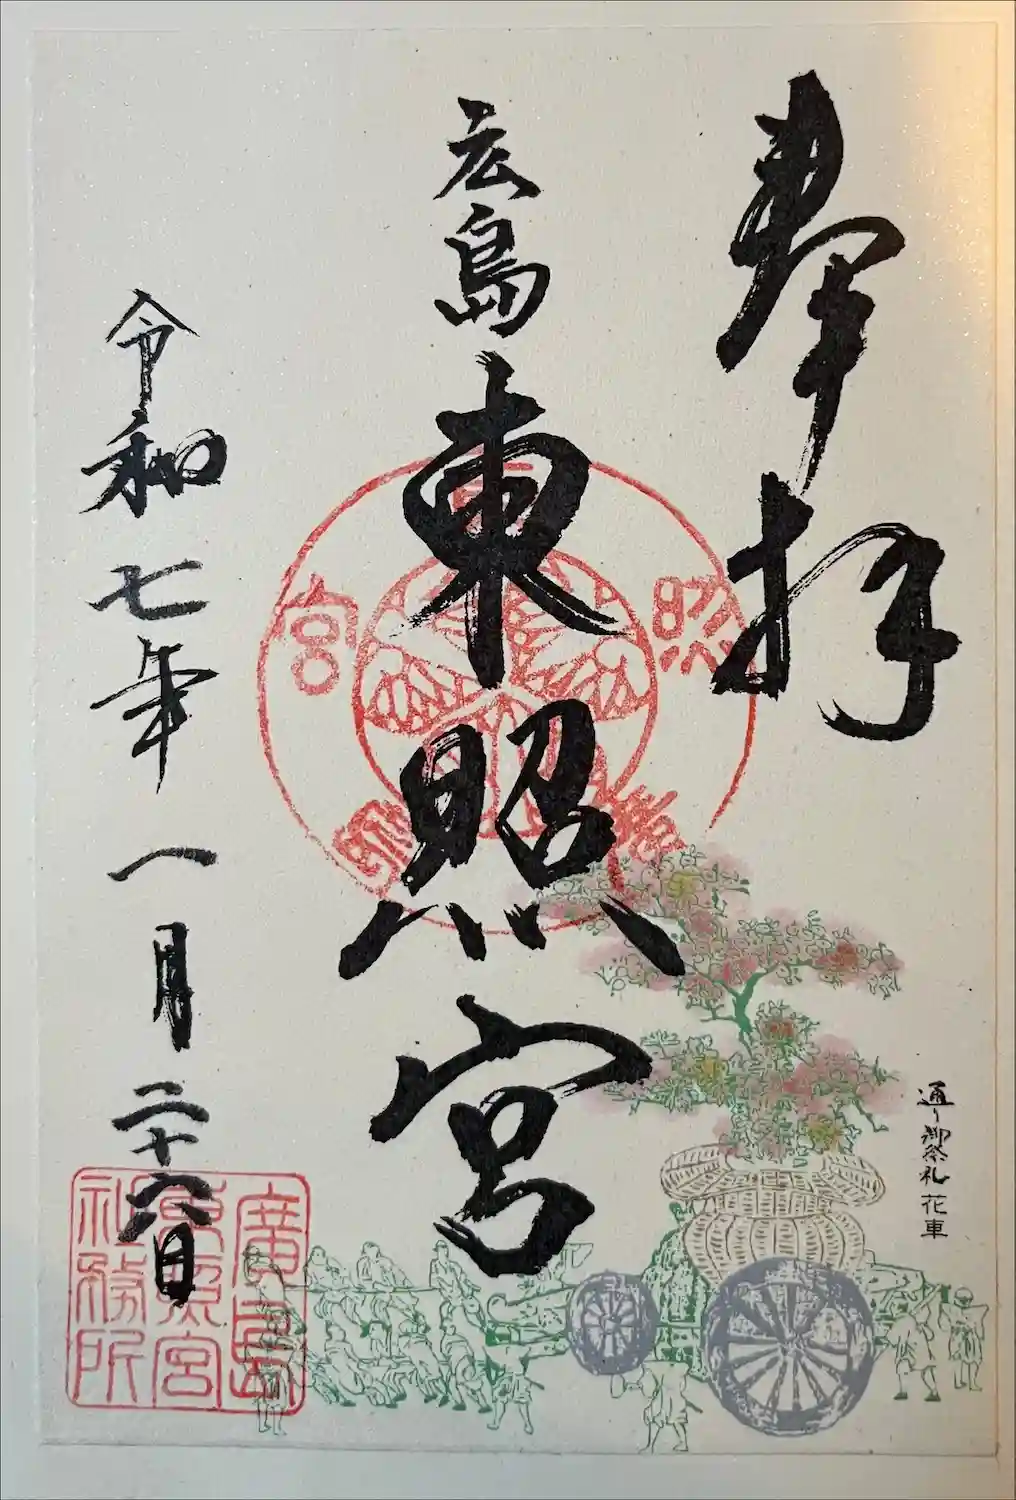 奉拝
広島東照宮
令和七年一月二十六日
通り御祭礼 花車
照
宮
廣島
東照宮
社務所